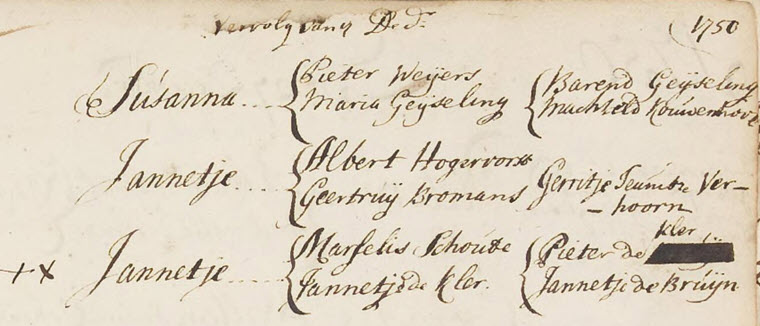 Vervolg van 9 Dedr 1750
Susanna.... Pieter Weijers Barend Geijseling
Maria Geijseling Machteld Kouwenhove
Jannetje.... Albert Hogervorst
Geertruij Bromans Gerritje Teunisz Ver-
- hoorn
Jannetje.... Marselis Schoute Pieter de kler
+ x Jannetje de Kler. Jannetje de Bruijn